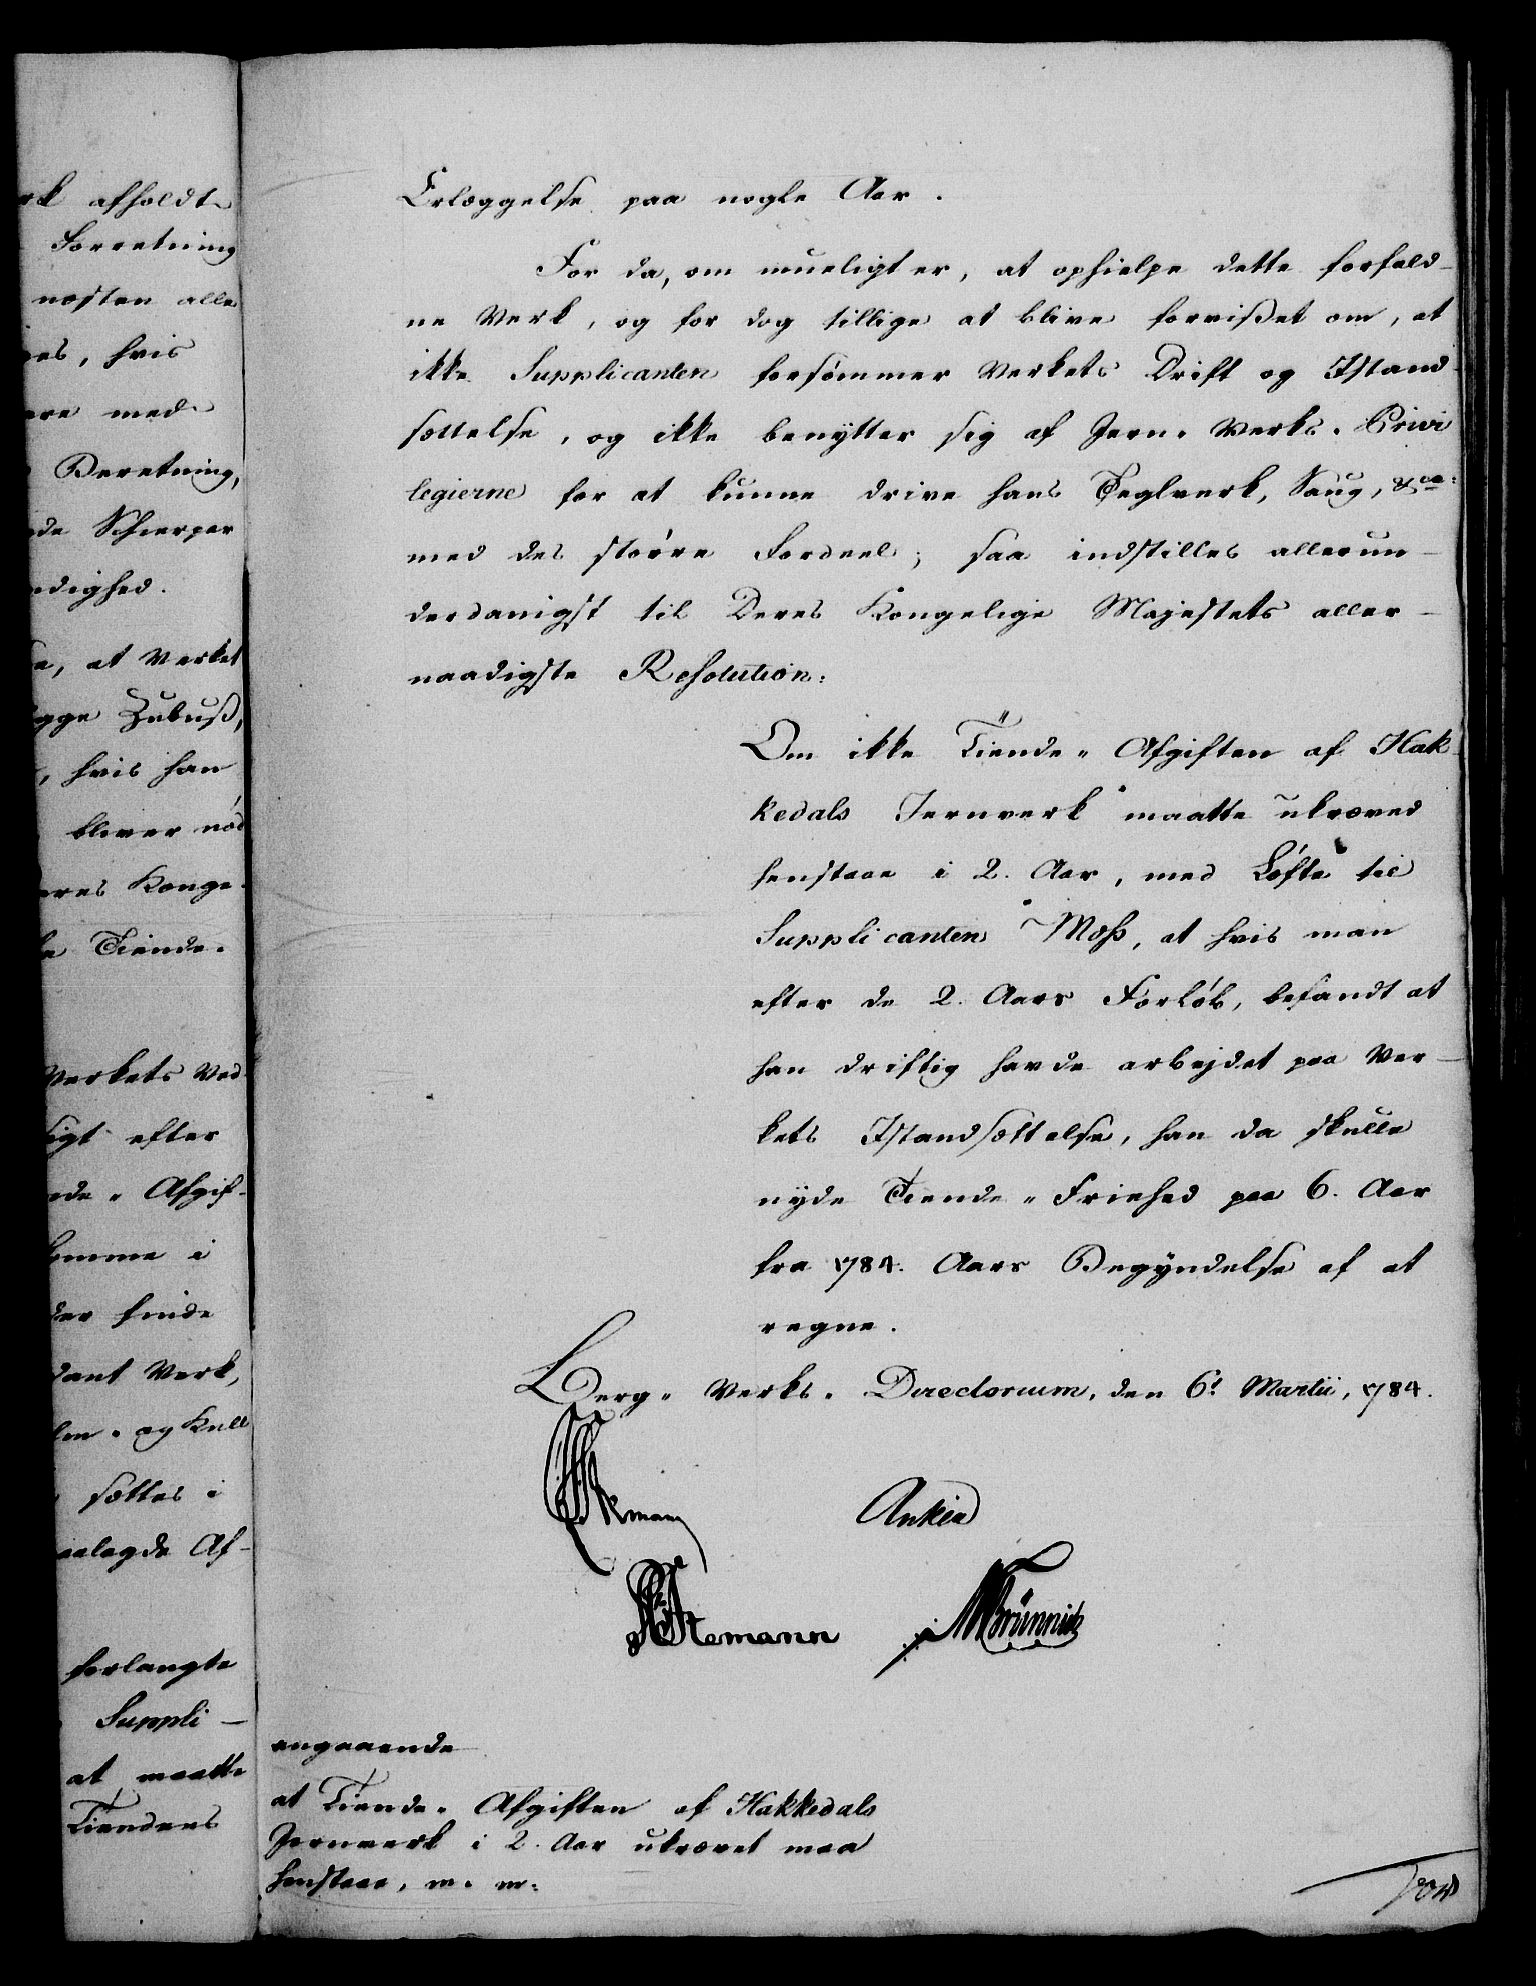 rk afholdt
Forretning
næsten alle
es, hvis
ere med
Beretning,
de Schierper
dighed.
e, at Verket
gge Zubuß,
, hvis han
bliver nød
eres Konge-
Tiende-
Verkets Ved-
igt efter
de- Afgif-
komme i
der finde
dant Verk,
og Kull
sættes i
aalagde Af-
forlangte
Suppli-
at maatte
Tiendens
Erlæggelse paa nogle Aar.
For da, om mueligt er, at ophielpe dette forfald-
ne Verk, og for dog tillige at blive forvißet om, at
ikke Supplicanten forsømmer Verkets Drift og Istand-
sættelse, og ikke benytter sig af Jern- Verks- Privi
legierne for at kunne drive hans Teglverk, Saug, &ca:
med des større Fordeel; saa indstilles allerun-
derdanigst til Deres Kongelige Majestets aller-
naadigste Resolution:
Om ikke Tiende- Afgiften af Hak-
kedals Jernverk maatte ukræved
henstaae i 2. Aar, med Løfte til
Supplicanten Moss, at hvis man
efter de 2. Aars Forløb, befandt at
han driftig havde arbejdet paa Ver-
kets Istandsættelse, han da skulle
nyde Tiende- Friehed paa 6. Aar
fra 1784. Aars Begyndelse af at
regne.
Berg- Verks- Directorium, den 6t Martii, 1784.
Anker
Hemann MBrünnich
angaaende
at Tiende- Afgiften af Hakkedals
Jernverk i 2. Aar ukrævet maa
henstaae, m. m: